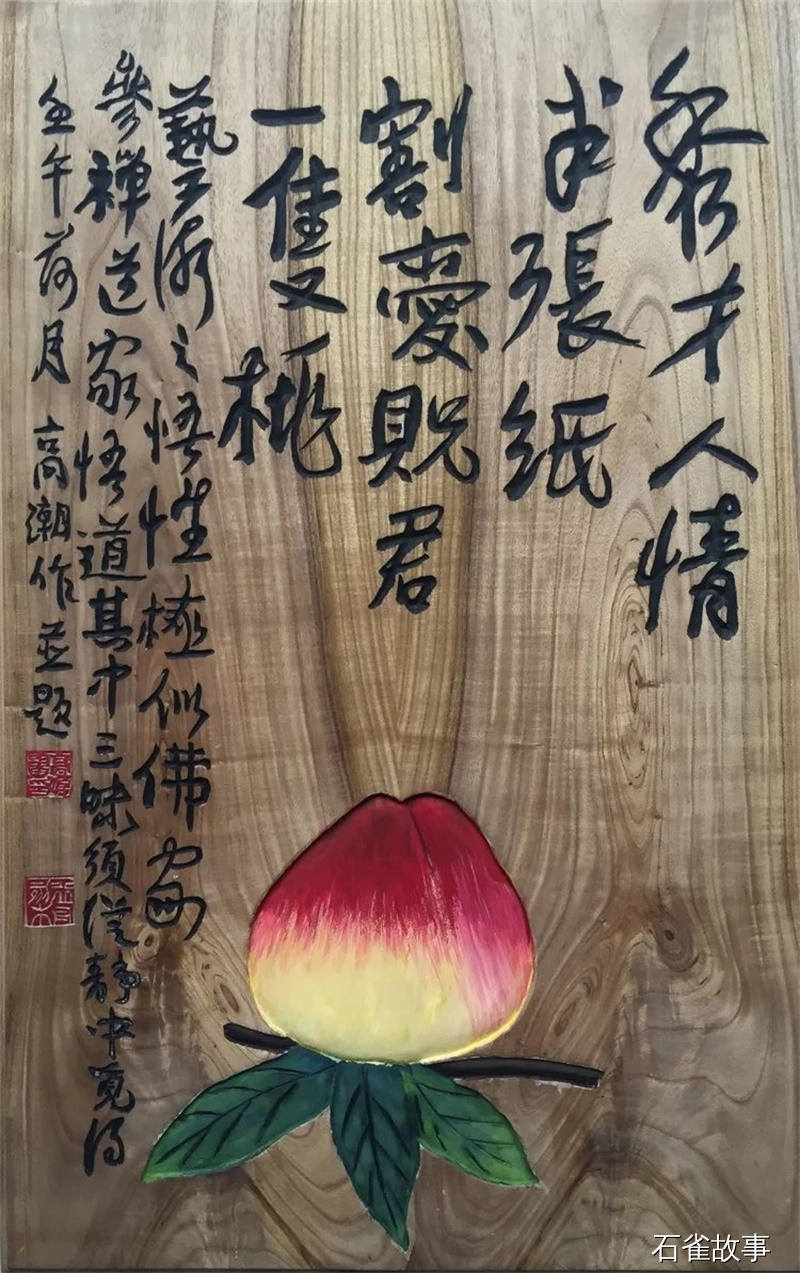 秀才人情
半張紙
割愛貺君
一隻桃
藝術之悟性極似佛家
參禪道家悟道其中三昧須從靜中覓得
壬午荷月 高潮作並題
石雀故事